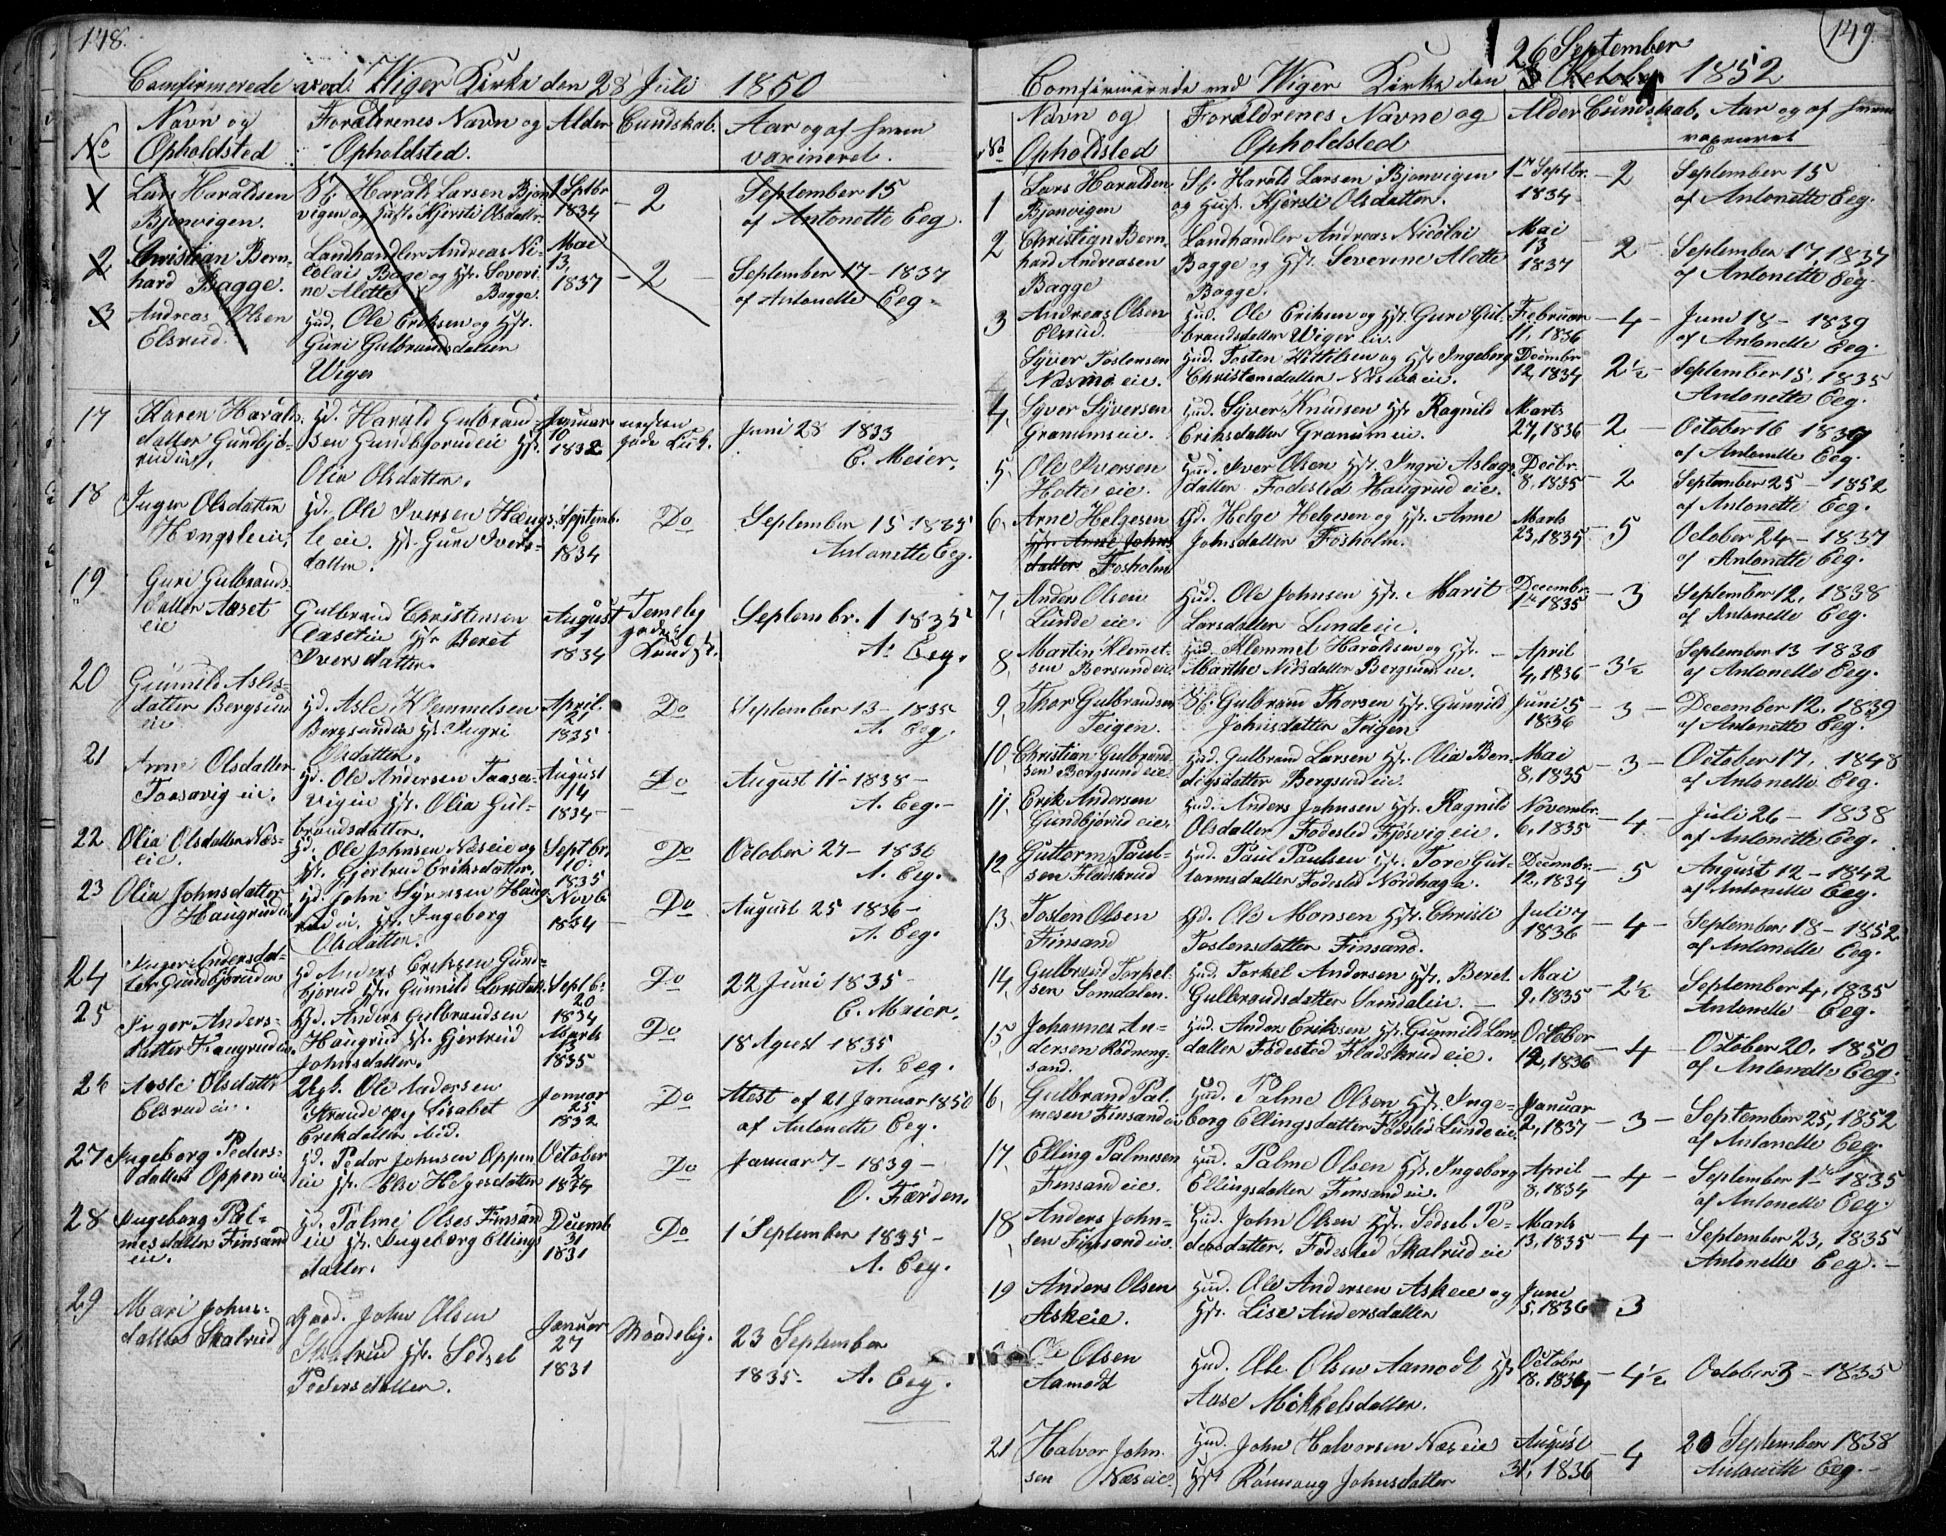 148.
Comfirmerede ved Wiger Kirke den 28 Juli 1850
No
Navn og
Opholdsted
Forældrenes Navn og
Opholdsted.
Alder
Cundskab.
Aar og af hvem
vaxineret.
1
Lars Haraldsen
Bjonvigen.
Sf. Harald Larsen Bjon-
vigen og Hust. Kjersti Olsdatter
1 Septbr
1834
2
September 15
af Antonette Eeg.
2
Christian Bern-
hard Bagge.
Landhandler Andreas Ni-
colai Bage og Hst. Severi-
ne Alette Bagge.
Mai
13,
1837
2
September 17 - 1837
af Antonette Eeg.
3
Andreas Olsen
Elsrud.
Hud. Ole Eriksen og Hst.
Guri Gulbrandsdatter
Wiger
17
Karen Harals-
datter Gundbjø-
rud eie.
Hd. Harald Gulbrand-
sen Gundbjorud eie Hst.
Olia Olsdatter.
Januar
10
1832
næsten
gode Kundsk.
Juni 28 1833
C. Meier.
18
Inger Olsdatter
Hongsle eie.
Hd. Ole Iversen Hængs-
le eie. Hst. Guri Ivers-
datter.
Septemb.
6
1834
Do
September 15 1835
Antonette Eeg.
19
Guri Gulbrands-
datter Aaset
eie
Gulbrand Christensen
Aaset eie Hst Beret
Iversdatter.
August
1
1834
Temelig
gode
Kundsk.
Septembr. 1 1835
A. Eeg.
20
Gunnild Asles-
datter Bergsun
eie
Hd. Asle Klemmetsen
Bergsundeie Hst Ingri
Olsdatter.
April
21
1835
Do
September 13 - 1835
A. Eeg.
21
Anne Olsdatter
Taasavig eie.
Hd. Ole Andersen Taasa-
vigeie Hst. Olia Gul-
brandsdatter.
August
14
1834
Do
August 11 - 1838 -
A. Eeg. -
22
Olia Olsdatter Næs-
eie.
Hd. Ole Johnsen Næseie og
Hst. Gjertrud Eriksdatter.
Septbr.
10
1835
Do
October 27 - 1836
A. Eeg.
23
Olia Johnsdatter
Haugrudeie
Hd. John Syversen Haug-
rud eie, Hst. Ingeborg
Olsdatter.
Novb.
6
1834
Do
August 25 1836 -
A. Eeg.
24
Inger Andersdat-
ter Gundbjorudeie
Hd Anders Eriksen Gund-
bjorud Hst. Gunnild Larsdatter.
Septb.
20
1834
Do
22 Juni 1835
C. Maier.
25
Inger Anders-
datter Haugrudeie
Hd. Anders Gulbrandsen
Haugrud Hst. Gjertrud
Johnsdatter.
Marts
13
1835
Do
18 Agust 1835
A. Eeg.
26
Aasle Olsdatt.
Elsrud eie.
Ole Andersen
Strande og Lisabet
Erekdatter ibid.
Januar
25
1832
Do
Attest af 21 Januar 1850
af Antonette Eeg.
27
Ingeborg Peders-
datter Oppen eie
Hd. Peder Johnsen Oppen
eie Hst. Else Helgesdatter
October
2
1834
Do
Januar 7 - 1839 -
O. Færden.
28
Ingeborg Pal-
mesdatter Finsand
eie.
Hd. Palmej Olses Finsand
eie Hst. Ingeborg Ellings-
datter.
Decemb.
31
1831
Do
1 September 1835 -
A. Eeg.
29
Mari Johns-
datter Skalrud
Gaard. John Olsen
Skalrud Hst. Sedsel
Pedersdatter.
Januar
27
1831
Maadelig.
23 September
1835- A. Eeg.
149
26 September
Comfirmerede ved Wiger Kirke den 3 October 1852
No
Navn og
Opholdsted
Forældrenes Navne og
Opholdsted
Alder
Cundskab,
Aar og af hvem
vaxineret
1
Lars Haraldsen
Bjonvigen
Sf. Harald Larsen Bjonvigen
og Hust. Kjersti Olsdatter.
1ste Septbr.
1834
2
September 15
af Antonette Eeg.
2
Christian Bern-
hard Andreasen
Bagge
Landhandler Andreas Nicolai
Bagge og Hst. Severine Alette
Bagge.
Mai
13
1837
2
September 17, 1837
af Antonette Eeg.
3
Andreas Olsen
Elsrud.
Hud. Ole Eriksen og Hst Guri Gul-
brandsdatter Wiger eie.
Februar
11, 1836
4
Juni 18 - 1839
af Antonette Eeg.
Syver Tostensen
Næsmo eie.
Hud. Tosten Kittilsen og Hst Ingeborg
Christensdatter Næsmo eie.
Decembr
12, 1834
2½
September 15, 1835
Antonette Eeg.
4,
Syver Syversen
Granum eie.
Hud. Syver Knudsen Hst. Ragnild
Eriksdatter Granum eie.
Marts
27, 1836
2
October 16 1837
af Antonette Eeg.
5,
Ole Iversen
Holte eie.
Hud. Iver Olsen Hst. Ingri Aslags-
datter Fødested Haugrud eie.
Decbr.
8, 1835
2
September 25 - 1852
af Antonette Eeg.
6,
Arne Helgesen
Hst. Anne Johns-
datter Fosholm
Gd. Helge Helgesen og Hst. Anne
Johnsdatter Fosholm.
Marts
23, 1835
5
October 24 - 1837
af Antonette Eeg.
7,
Anders Olsen
Lunde eie.
Hud. Ole Johnsen Hst. Marit
Larsdatter Lunde eie.
Decembr.
1ste 1835
3
September 12, 1838
af Antonette Eeg.
8,
Martin Klemet-
sen Bersund eie.
Hud. Klemmet Haraldsen og Hst.
Marthe Nilsdatter Bergsund eie.
April
4, 1836
3½
September 13 1836
af Antonette Eeg.
9,
Thor Gulbrandsen
Teigen.
Sf. Gulbrand Thorsen Hst. Gunnild
Johnsdatter Teigen.
Juni 5
1836
3
December 12, 1839
af Antonette Eeg.
10,
Christian Gulbrand-
sen Borgsund eie
Hud. Gulbrand Larsen Hst. Olia Ben-
digsdatter Bergsund eie.
Mai
8, 1835
3
October 17, 1848
af Antonette Eeg.
11,
Erik Andersen
Gundbjørud eie.
Hud. Anders Johnsen Hst. Ragnild
Olsdatter Fødested Fjøsvig eie.
Novembr.
6, 1835
4
Juli 26 - 1838
af Antonette Eeg.
12,
Guttorm Paul-
sen Fladskrud
Hud. Paul Paulsen Hst. Tore Gut-
tormsdatter Fødested Nordhaga.
Decembr.
12, 1834
5
August 12 - 1842
af Antonette Eeg.
13,
Tosten Olsen
Finsand
Gd. Ole Monsen Hst. Christi
Tostensdatter Finsand.
Juli 7
1836
4
September 18 - 1852
af Antonette Eeg.
14,
Gulbrand Torkel-
sen Somdalen.
Hud. Torkel Andersen Hst. Beret
Gulbrandsdatter Somdaleie.
Mai
9, 1835
2½
September 4, 1835
Antonette Eeg.
15,
Johannes An-
dersen Rødneng-
sand.
Hud. Anders Eriksen Hst. Gunnild Lars-
datter Fødested Fladskrud eie.
October
12, 1836
4
October 20, 1850
af Antonette Eeg.
16,
Gulbrand Pal-
mesen Finsand eie
Hud. Palme Olsen Hst. Inge-
borg Ellingsdatter Fødsted Lunde eie.
Januar
2, 1837
3
September 25, 1852
af Antonette Eeg.
17,
Elling Palmesen
Finsand eie.
Hud. Palme Olsen Hst. Ingeborg
Ellingsdatter Finsand eie.
April
8, 1834
4
September 1ste 1835
af Antonette Eeg.
18,
Anders John-
sen Finsand eie.
Hud. John Olsen Hst. Sedsel Pe-
dersdatter. Fødested Skalrud eie
Marts
13, 1835
4
September 23, 1835
Antonette Eeg. -
19
Anders Olsen
Askeie.
Hud. Ole Andersen Askeie og
Hst. Lise Andersdatter
Juni
5, 1836
3
Ole Olsen
Aamodt
Hud. Ole Olsen Aamodt Hst
Aase Mikkelsdatter.
Octobr
18, 1834
4½
October 3 - 1835
21
Halvor John-
sen Næseie.
Hud. John Halvorsen Næseie
Hst Rønnaug Johnsdatter
August
31, 1836
4
20 September 1838
Antonette Eeg. -